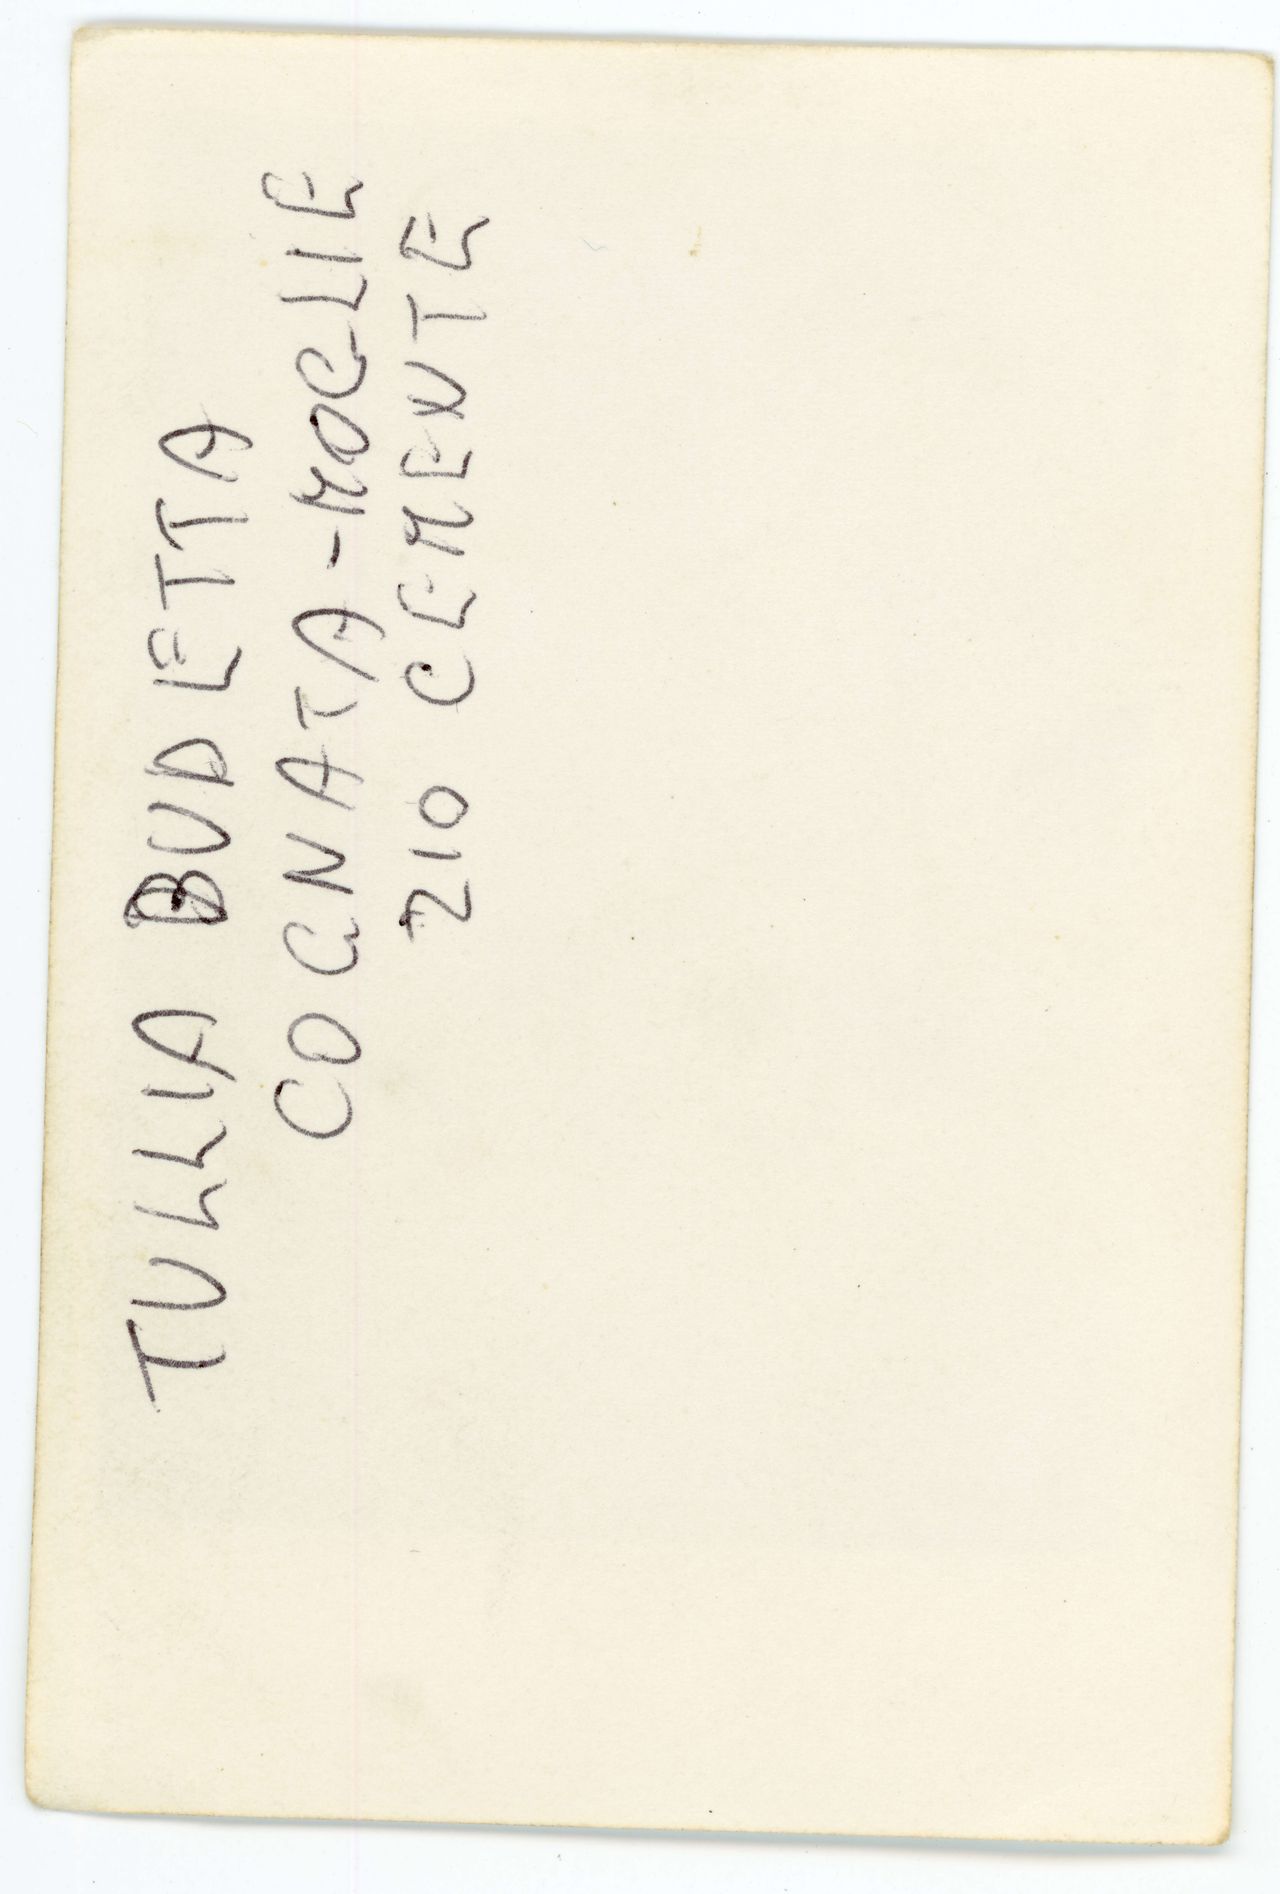 TULLIA BUDETTA
COGNATA-MOGLIE
ZIO CLEMENTE